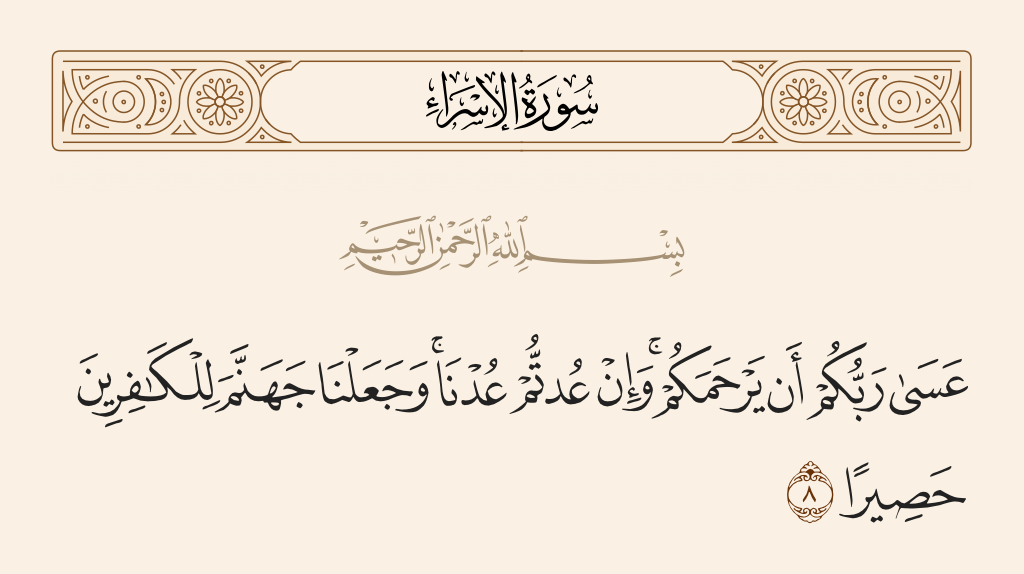 سُورَةُ الإِسْرَاءِ
بِسْمِ ٱللَّهِ ٱلرَّحْمَٰنِ ٱلرَّحِيمِ
عَسَىٰ رَبُّكُمْ أَن يَرْحَمَكُمْ ۚ وَإِنْ عُدتُّمْ عُدْنَا ۚ وَجَعَلْنَا جَهَنَّمَ لِلْكَـٰفِرِينَ
حَصِيرًا ٨